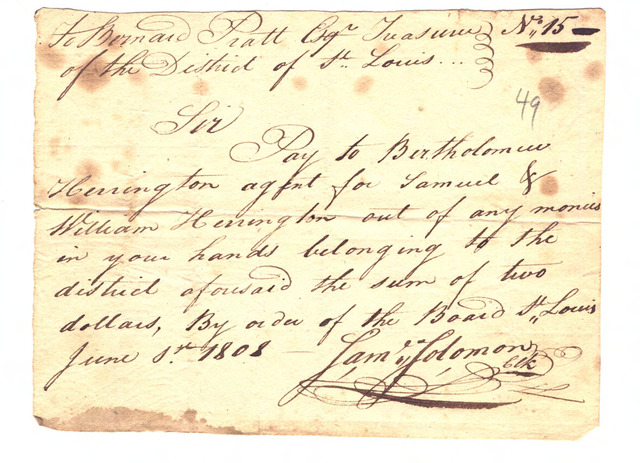 To Bernard Pratt Esqr. Treasurer
of the District of St. Louis...
No. 15
49
Sir
Pay to Bertholomew
Herrington agent for Samuel &
William Herrington out of any monies
in your hands belonging to the
district aforesaid the sum of two
dollars, By order of the Board St. Louis
June 1808
Saml. Solomon
Clk